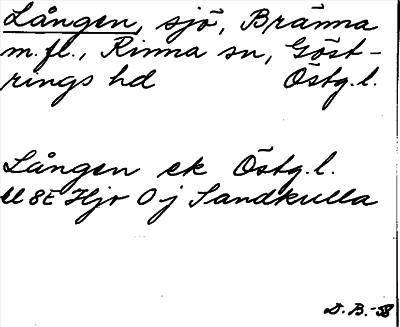 Lången, sjö, Bränna
m.fl., Rinna sn, Göst-
rings hd Östg.l.
Lången ek Östg.l.
ll 8E Hjo 0j Sandkulla
D.B.-58